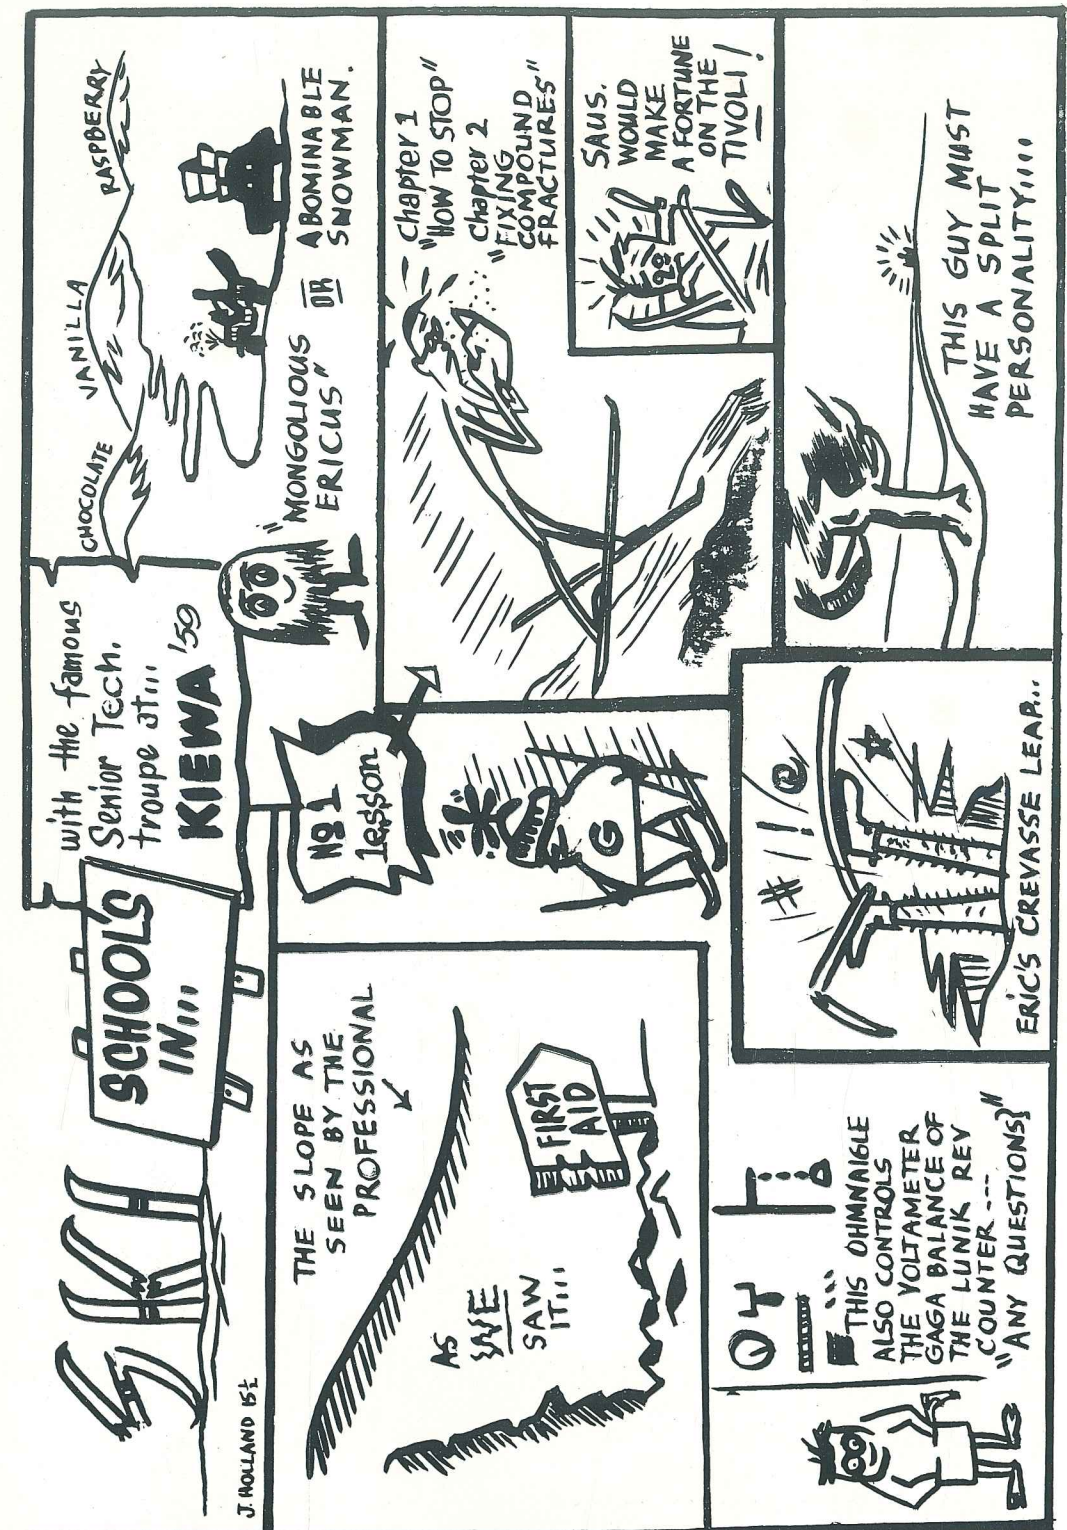 SKI
SCHOOL'S
IN...
with the famous
Senior Tech.
troupe at...
KIEWA '59
J. HOLLAND 15½
CHOCOLATE
VANILLA
RASPBERRY
"MONGOLIOUS
ERICUS"
OR
ABOMINABLE
SNOWMAN.
THE SLOPE AS
SEEN BY THE
PROFESSIONAL
AS
WE
SAW
IT...
FIRST
AID
No 1
lesson
G
Chapter 1
"HOW TO STOP"
Chapter 2
"FIXING
COMPOUND
FRACTURES"
SAUS.
WOULD
MAKE
A FORTUNE
ON THE
TIVOLI!
THIS OHMNAIGLE
ALSO CONTROLS
THE VOLTAMETER
GAGA BALANCE OF
THE LUNIK REV
COUNTER ---
"ANY QUESTIONS}"
# !! @
ERIC'S CREVASSE LEAP...
THIS GUY MUST
HAVE A SPLIT
PERSONALITY....